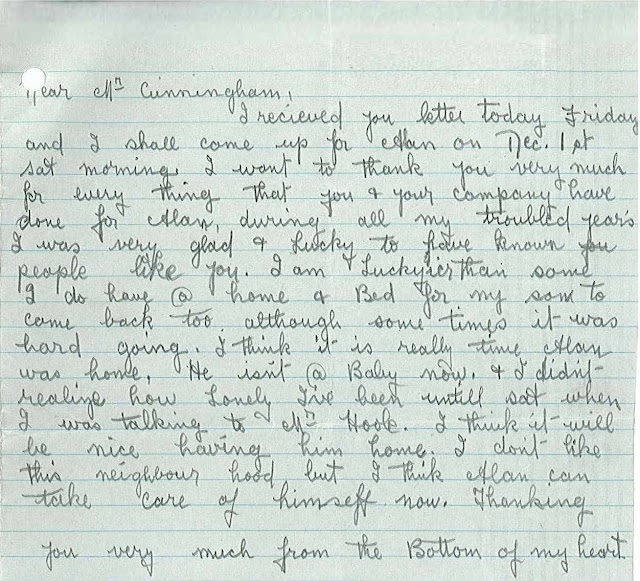 Dear Mr Cunningham,
I recieved you letter today Friday
and I shall come up for Alan on Dec. 1st
sat morning, I want to thank you very much
for every thing that you & your company have
done for Alan, during all my troubled years
I was very glad & Lucky to have known you
people like you. I am Luckyier than some
I do have @ home & Bed for my son to
come back too although some times it was
hard going. I think it is really time Alan
was home. He isn't @ Baby now. & I didn't
realize how Lonely I've been untill sat when
I was talking to Mr Hook. I think it will
be nice having him home. I don't like
this neighbour hood but I thik Alan can
take care of himself now. Thanking
you very much from the Bottom of my heart.